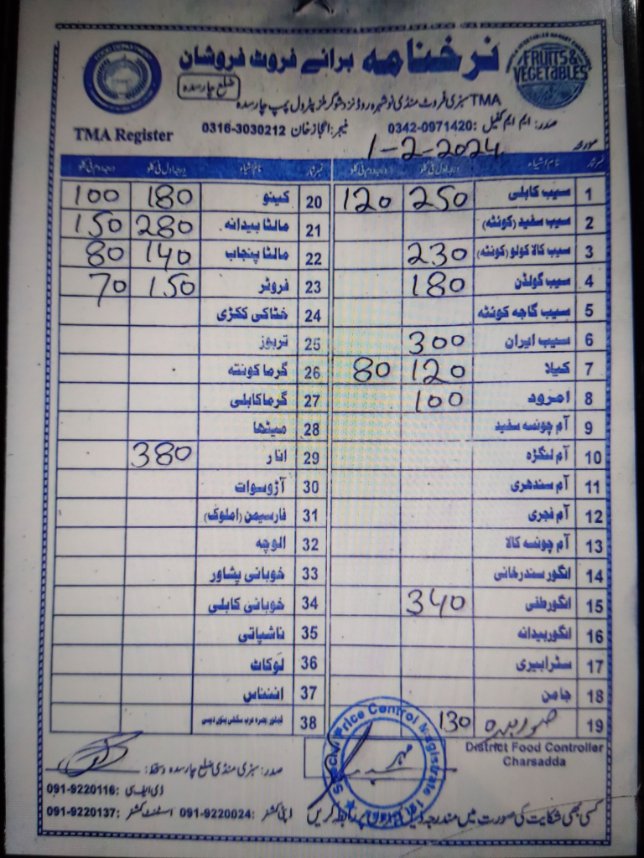 نرخنامہ برائے فروٹ فروشان
FRUITS & VEGETABLES
ضلع چارسدہ
TMA سبزی فروٹ منڈی نوشہرہ روڈ نزد پٹرول پمپ چارسدہ
صدر: ایم ایم کفیل: 0342-0971420 منیجر: اعجاز خان 0316-3030212 TMA Register
مورخہ 1-2-2024
نمبر شمار نام اشیاء درجہ اول فی کلو درجہ دوم فی کلو نمبر شمار نام اشیاء درجہ اول فی کلو درجہ دوم فی کلو
1 سیب کابلی 250 120 20 کینو 180 100
2 سیب سفید (کوئٹہ) 21 مالٹا بیدانہ 280 150
3 سیب کالا کولو (کوئٹہ) 230 22 مالٹا پنجاب 140 80
4 سیب گولڈن 180 23 فروٹر 150 70
5 سیب گاجہ کوئٹہ 24 خٹاکی ککڑی
6 سیب ایران 300 25 تربوز
7 کیلا 120 80 26 گرما کوئٹہ
8 امرود 100 27 گرما کابلی
9 آم چونسہ سفید 28 میٹھا
10 آم لنگڑہ 29 انار 380
11 آم سندھری 30 آڑو سوات
12 آم فجری 31 فارسیمن (املوک)
13 آم چونسہ کالا 32 الوچہ
14 انگور سندرخانی 33 خوبانی پشاور
15 انگور طفی 340 34 خوبانی کابلی
16 انگور بیدانہ 35 ناشپاتی
17 سٹرابیری 36 لوکاٹ
18 جامن 37 انناس
19 130 38 کھجور بصرہ
District Food Controller
Charsadda
Price Control Magistrate
صدر: سبزی منڈی ضلع چارسدہ دستخط:
ڈی ایف سی: 091-9220116
کسی بھی شکایت کی صورت میں مندرجہ ذیل پر رابطہ کریں
ڈپٹی کمشنر: 091-9220024 اسسٹنٹ کمشنر: 091-9220137